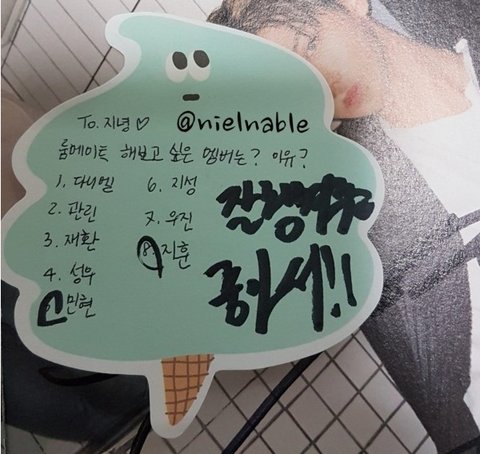 To. 지녕♡ @nielnable
룸메이트 해보고 싶은 멤버는? 이유?
1. 다니엘
2. 관린
3. 재환
4. 성우
5. 민현
6. 지성
7. 우진
8. 지훈